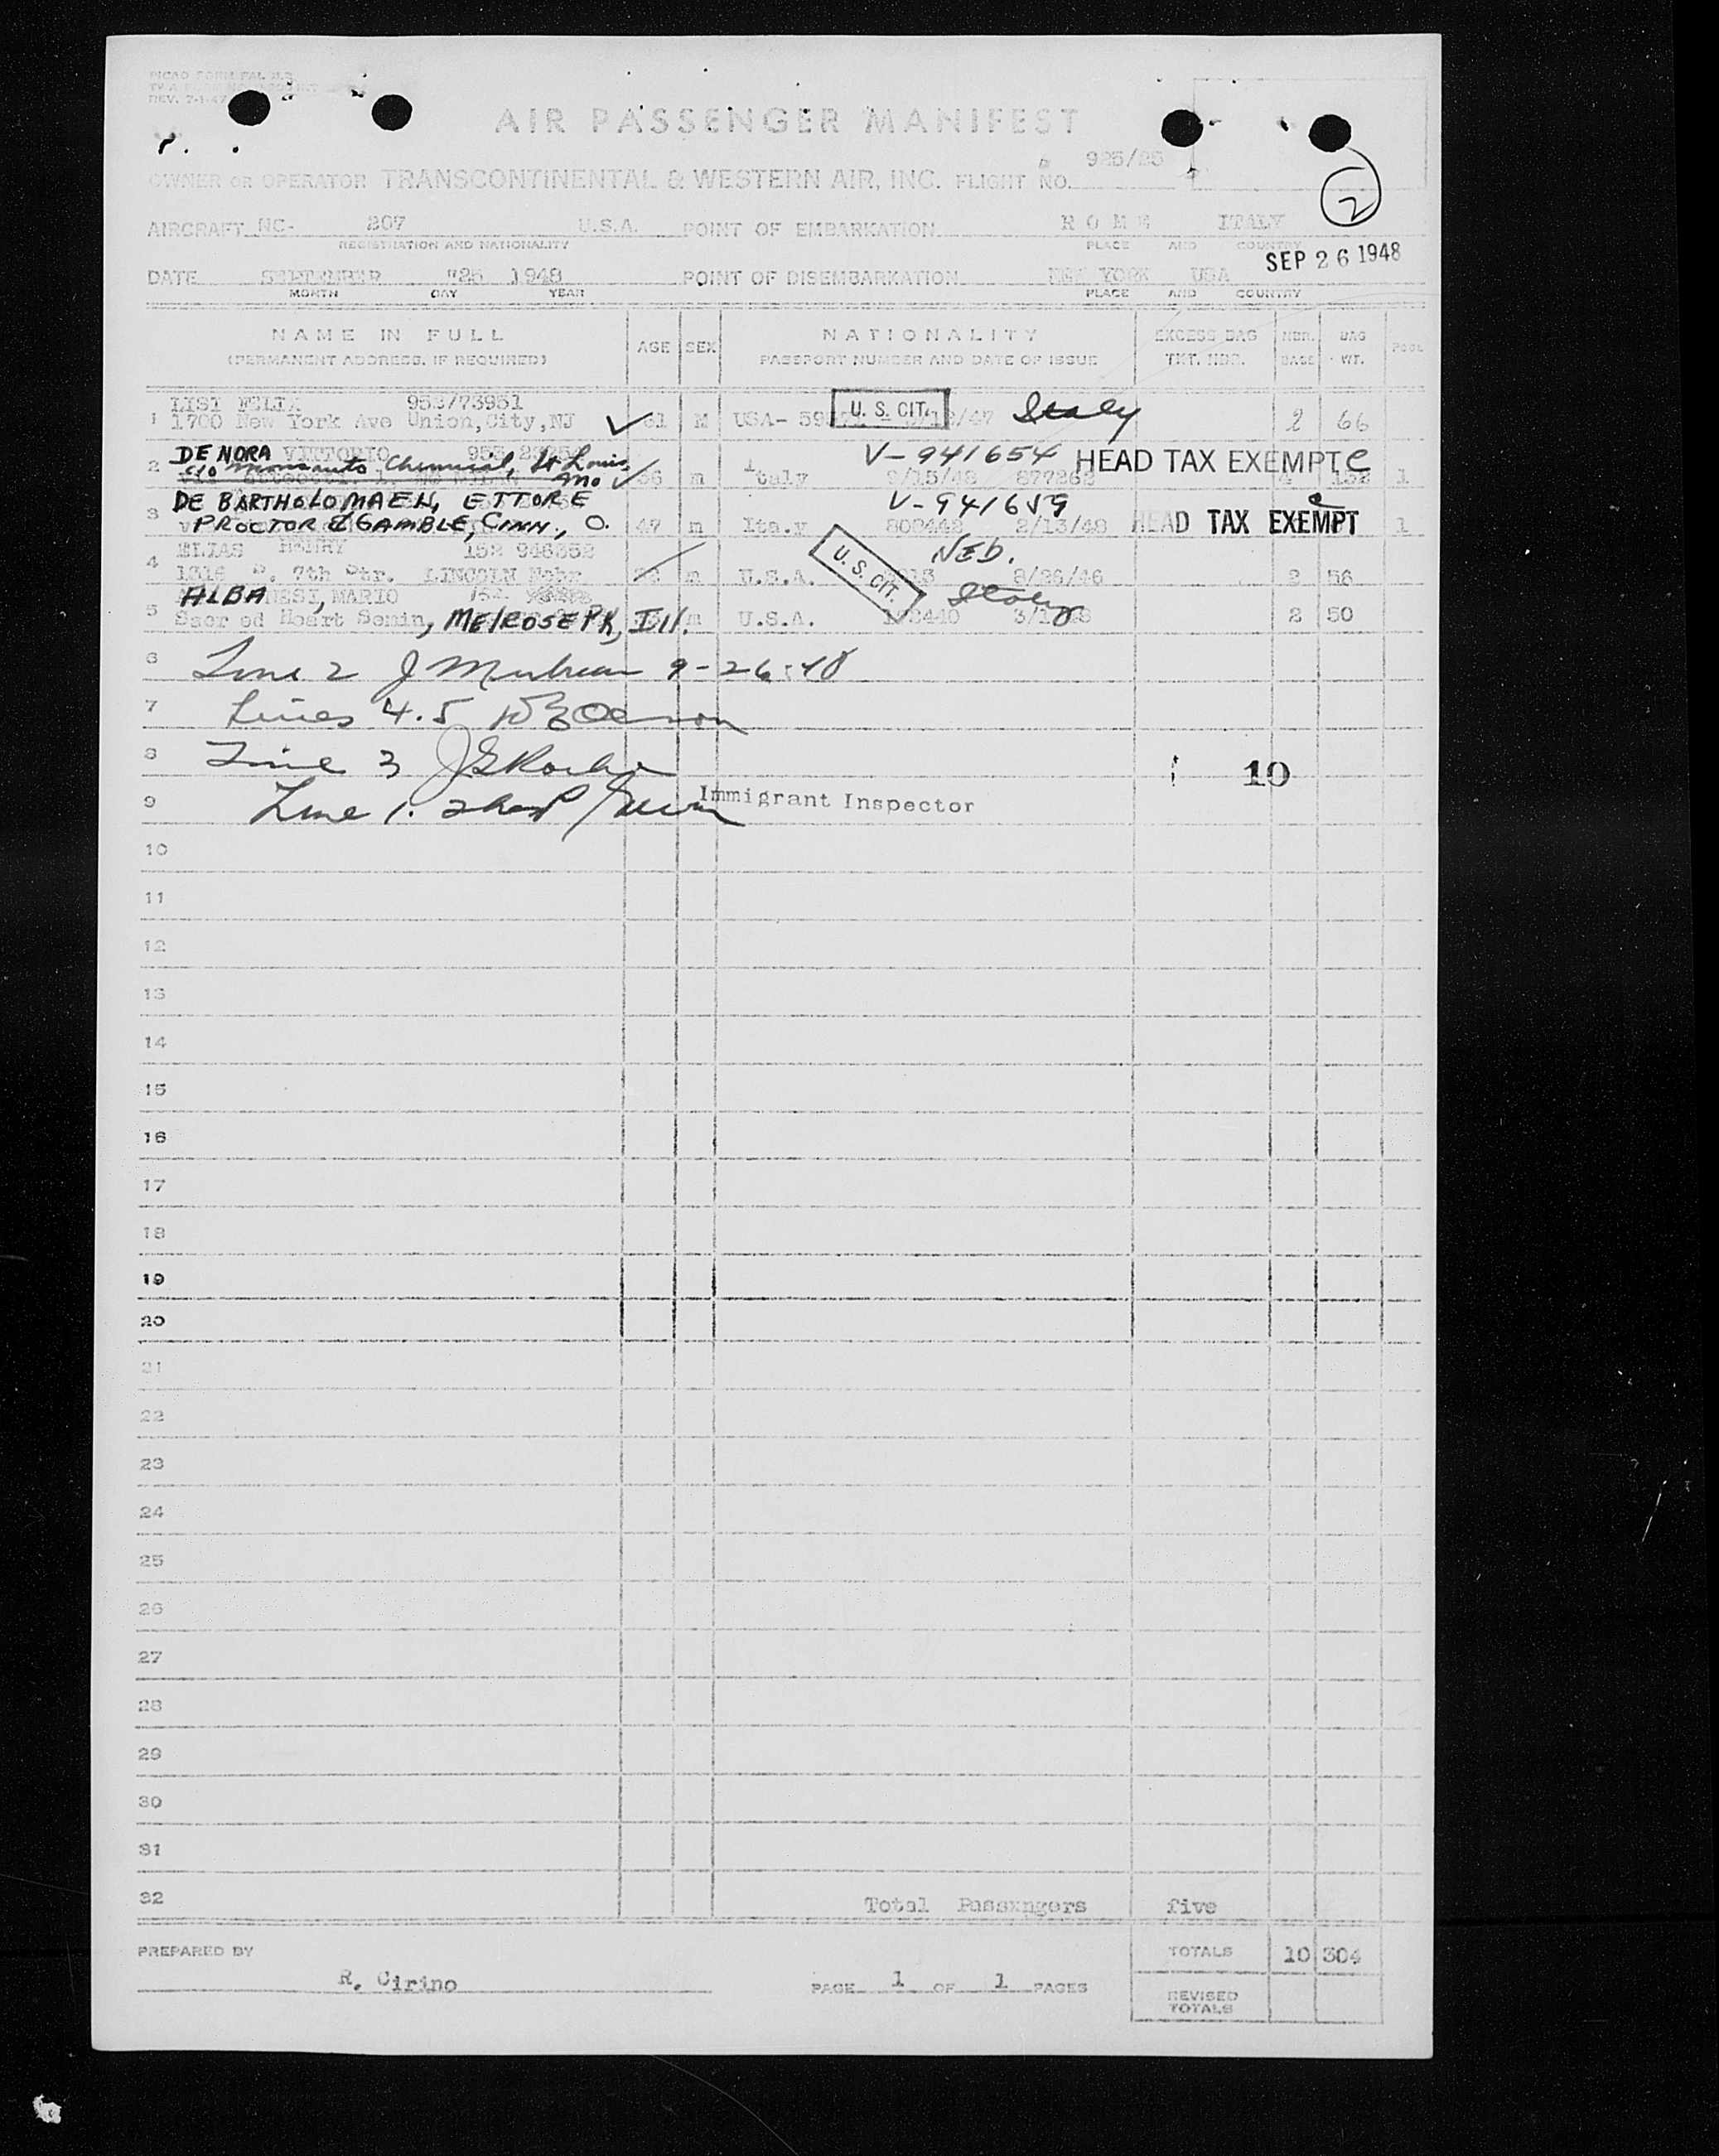 REV. 7-1-47
AIR PASSENGER MANIFEST
2
OWNER OR OPERATOR TRANSCONTINENTAL & WESTERN AIR, INC. FLIGHT NO. 925/25
AIRCRAFT NC- 207 U.S.A. POINT OF EMBARKATION ROME ITALY
REGISTRATION AND NATIONALITY PLACE AND COUNTRY
SEP 26 1948
DATE SEPTEMBER "25 1948 POINT OF DISEMBARKATION NEW YORK USA
MONTH DAY YEAR PLACE AND COUNTRY
NAME IN FULL AGE SEX NATIONALITY EXCESS BAG NBR. BAG POOL
(PERMANENT ADDRESS, IF REQUIRED) PASSPORT NUMBER AND DATE OF ISSUE TKT. NBR. BAGS WT.
LISI 953/73951 U. S. CIT. Italy
1 1700 New York Ave Union,City,NJ 61 M USA- 2 66
DE NORA VITTORIO 953 V-941654 HEAD TAX EXEMPT C
2 c/o Monsanto Chemical, St Louis, Mo 56 m Italy 9/15/48 877262 4 132 1
DE BARTHOLOMAEN, ETTORE V-941659 C
3 PROCTOR & GAMBLE, CINN., O. 47 m Ita.y 802442 2/13/48 HEAD TAX EXEMPT 1
ELIAS HENRY 152 946352 U. S. CIT. NEB.
4 1316 7th Str. LINCOLN Nebr m U.S.A. 8/26/46 2 56
ALBANESI, MARIO 152 Italy
5 Sacred Heart Semin, MELROSE PK, Ill. m U.S.A. 2 50
6 Line 2 J 9-26-48
7 Lines 4.5
8 Line 3 J Roche 10
9 Line 1. Immigrant Inspector
10
11
12
13
14
15
16
17
18
19
20
21
22
23
24
25
26
27
28
29
30
31
32 Total Passxngers five
PREPARED BY TOTALS 10 304
R. Cirino PAGE 1 OF 1 PAGES
REVISED
TOTALS